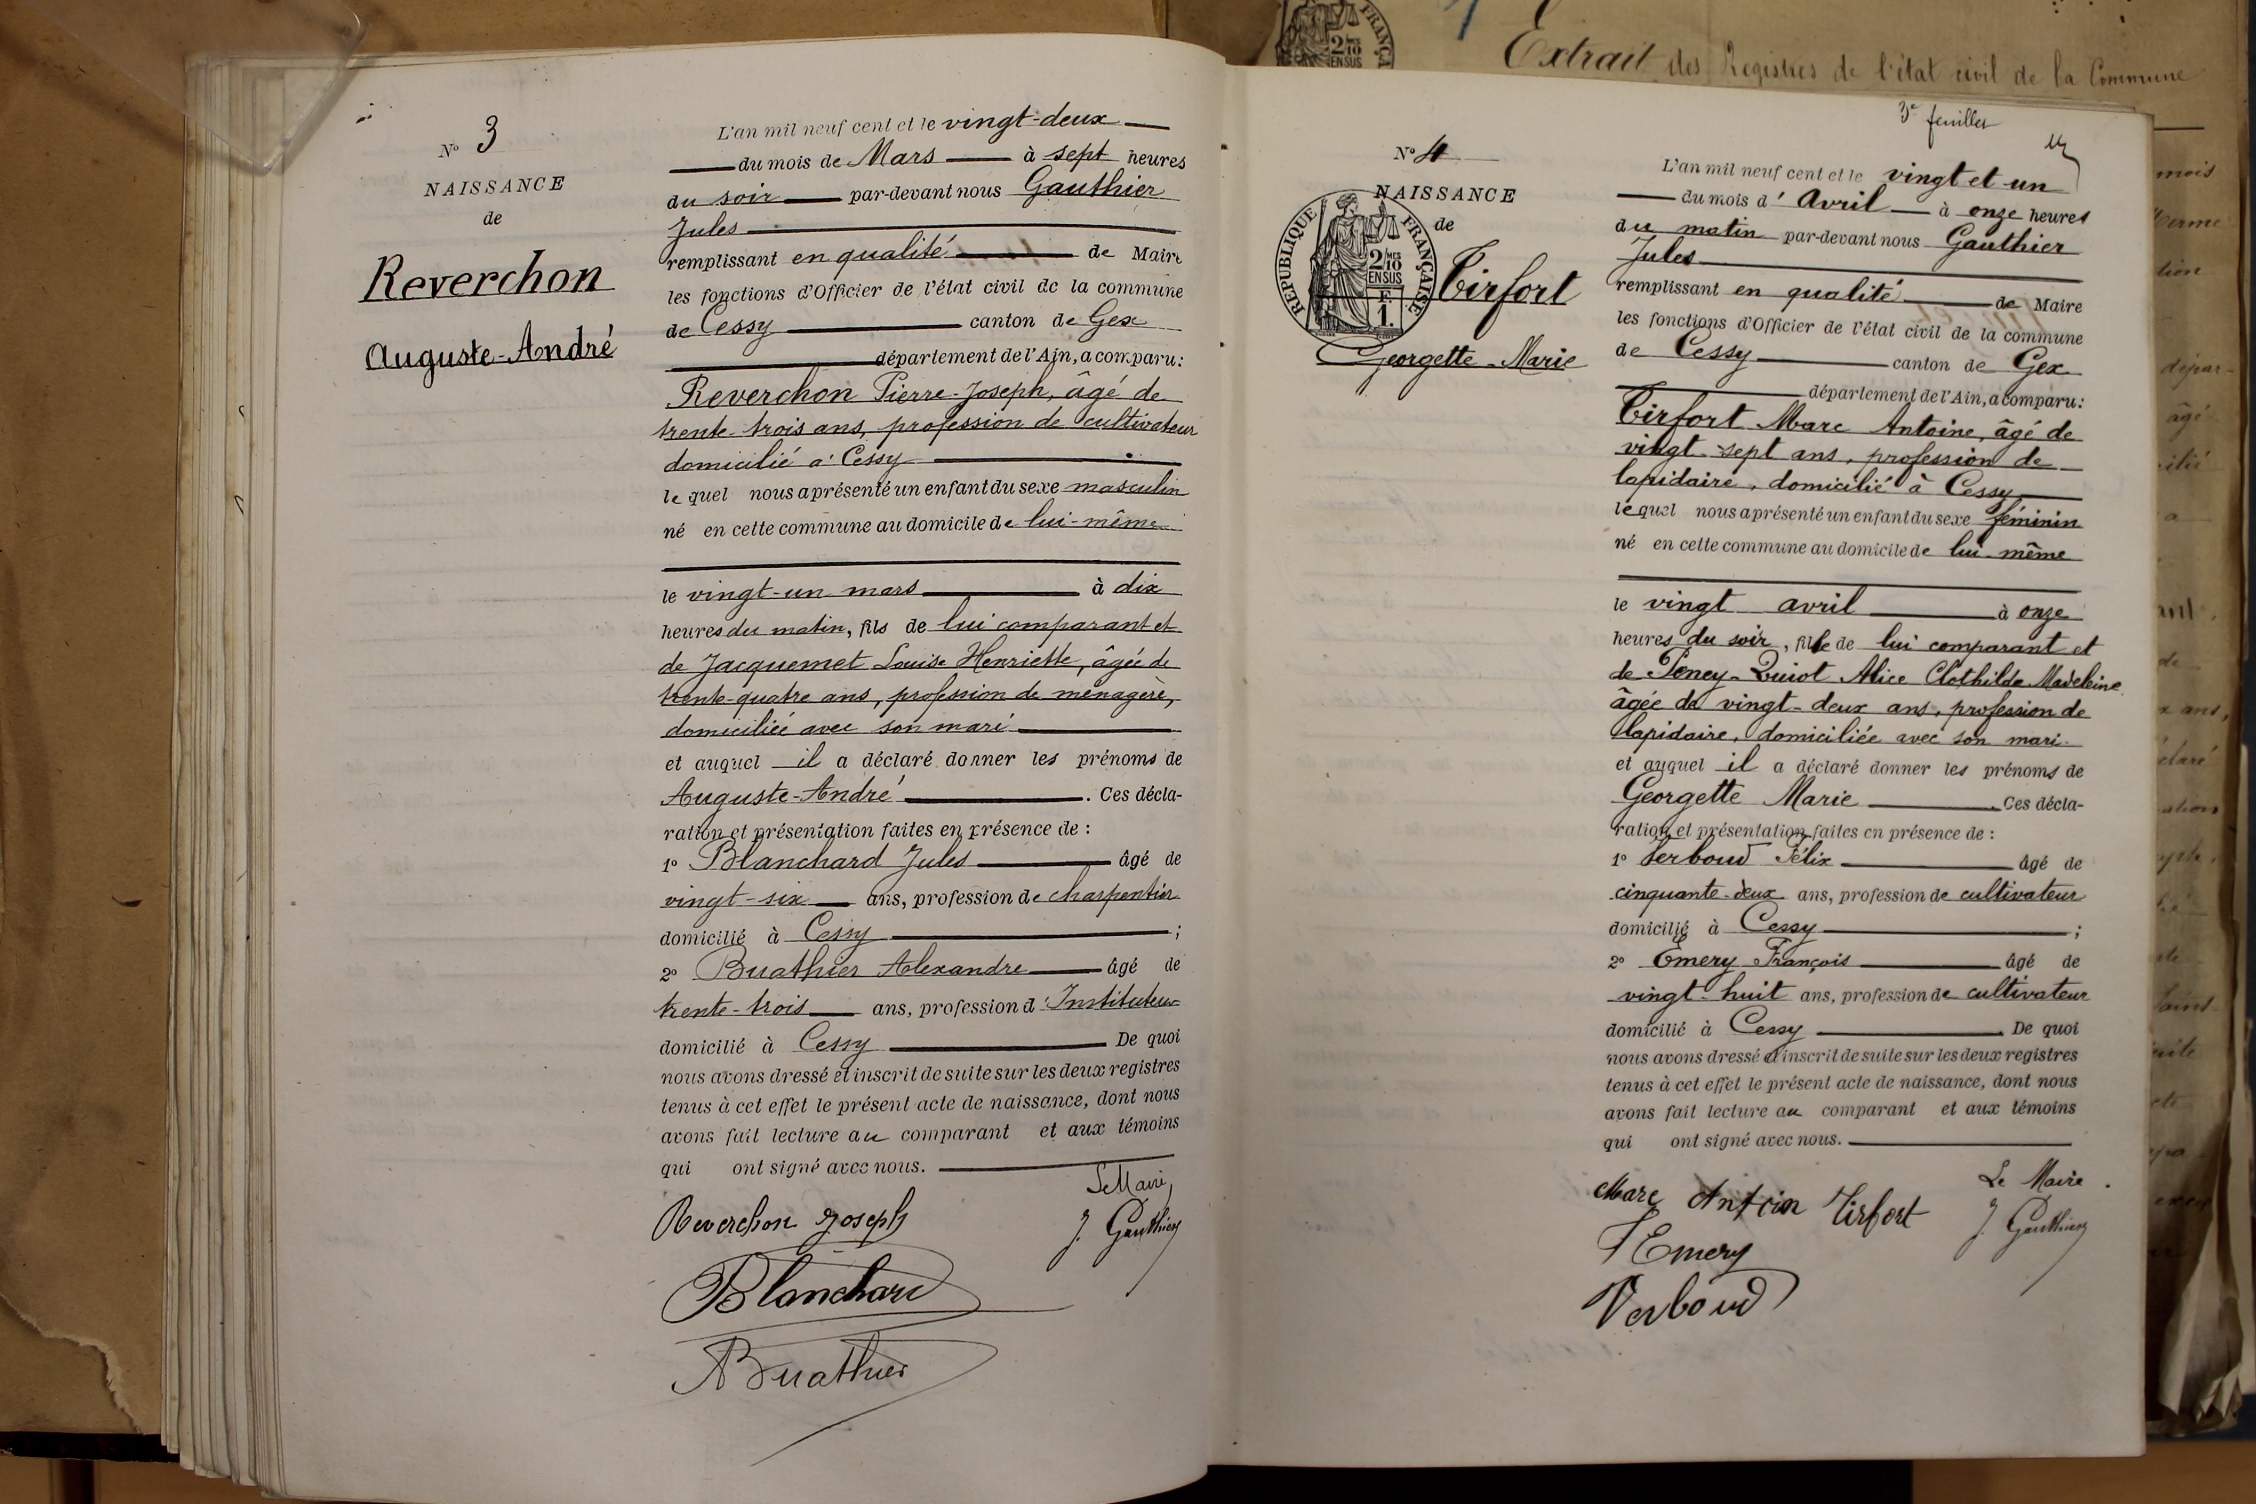 Nº 3
NAISSANCE
de
Reverchon
Auguste-André
L'an mil neuf cent et le vingt-deux
du mois de Mars à sept heures
du soir par-devant nous Gauthier
Jules
remplissant en qualité de Maire
les fonctions d'Officier de l'état civil de la commune
de Cessy canton de Gex
département de l'Ain, a comparu:
Reverchon Pierre-Joseph, âgé de
trente-trois ans, profession de cultivateur
domicilié à Cessy
lequel nous a présenté un enfant du sexe masculin
né en cette commune au domicile de lui-même
le vingt-un mars à dix
heures du matin, fils de lui comparant et
de Jacquemet Louise Henriette, âgée de
trente-quatre ans, profession de ménagère,
domiciliée avec son mari
et auquel il a déclaré donner les prénoms de
Auguste-André. Ces décla-
ration et présentation faites en présence de :
1º Blanchard Jules âgé de
vingt-six ans, profession de charpentier
domicilié à Cessy ;
2º Buathier Alexandre âgé de
trente-trois ans, profession d'Instituteur
domicilié à Cessy De quoi
nous avons dressé et inscrit de suite sur les deux registres
tenus à cet effet le présent acte de naissance, dont nous
avons fait lecture au comparant et aux témoins
qui ont signé avec nous.
Le Maire,
Reverchon Joseph J. Gauthier
Blanchard
ABuathier
Extrait des Registres de l'état civil de la Commune
3e feuillet
Nº 4
NAISSANCE
de
REPUBLIQUE FRANÇAISE
2/10
EN SUS
F.
1.
Tirfort
Georgette-Marie
L'an mil neuf cent et le vingt et un
du mois d'Avril à onze heures
du matin par-devant nous Gauthier
Jules
remplissant en qualité de Maire
les fonctions d'Officier de l'état civil de la commune
de Cessy canton de Gex
département de l'Ain, a comparu:
Tirfort Marc Antoine, âgé de
vingt-sept ans, profession de
lapidaire, domicilié à Cessy
lequel nous a présenté un enfant du sexe féminin
né en cette commune au domicile de lui-même
le vingt avril à onze
heures du soir, fille de lui comparant et
de Poney-Quiot Alice Clothilde Madeleine
âgée de vingt-deux ans, profession de
lapidaire, domiciliée avec son mari.
et auquel il a déclaré donner les prénoms de
Georgette Marie. Ces décla-
ration et présentation faites en présence de :
1º Verboud Félix âgé de
cinquante-deux ans, profession de cultivateur
domicilié à Cessy ;
2º Emery François âgé de
vingt-huit ans, profession de cultivateur
domicilié à Cessy. De quoi
nous avons dressé et inscrit de suite sur les deux registres
tenus à cet effet le présent acte de naissance, dont nous
avons fait lecture au comparant et aux témoins
qui ont signé avec nous.
Le Maire.
Marc Antoin Tirfort J. Gauthier
F Emery
Verboud